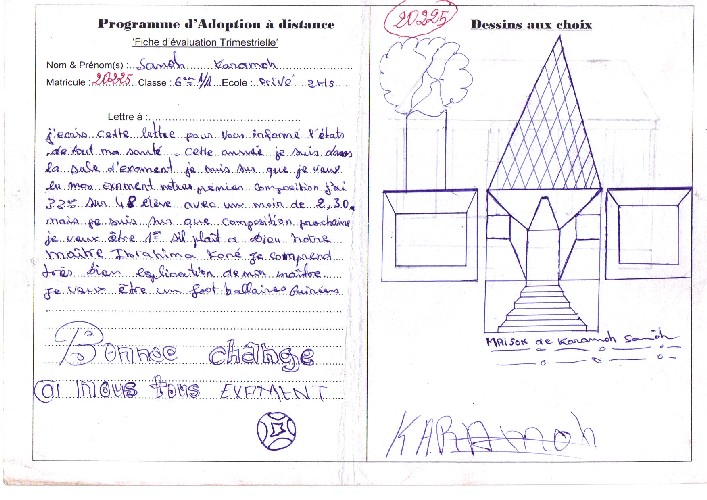 Programme d'Adoption à distance
'Fiche d'évaluation Trimestrielle'
Nom & Prénom(s) : Sanoh Karamoh
Matricule : 20225 Classe : 6ème /A Ecole : Privé 2HS
Lettre à :
j'ecris cette lettre pour vous informe l'états
de tout ma santé. cette année je suis dans
la sale d'exament je suis sur que je veux
eu mon exament notre premier composition j'ai
33ème sur 48 élève avec un moin de 2,30.
mais je suis sur que composition prochaine
je veux être 1er s'il plaît a Dieu notre
maître Ibrahima Koné je comprend
très bien explication de mon maître
je veux être un foot ballaires Guinéens
Bonnee change
a nous tous EXEMENT
20225
Dessins aux choix
MAison de Karamoh Sanoh
KARAmoh